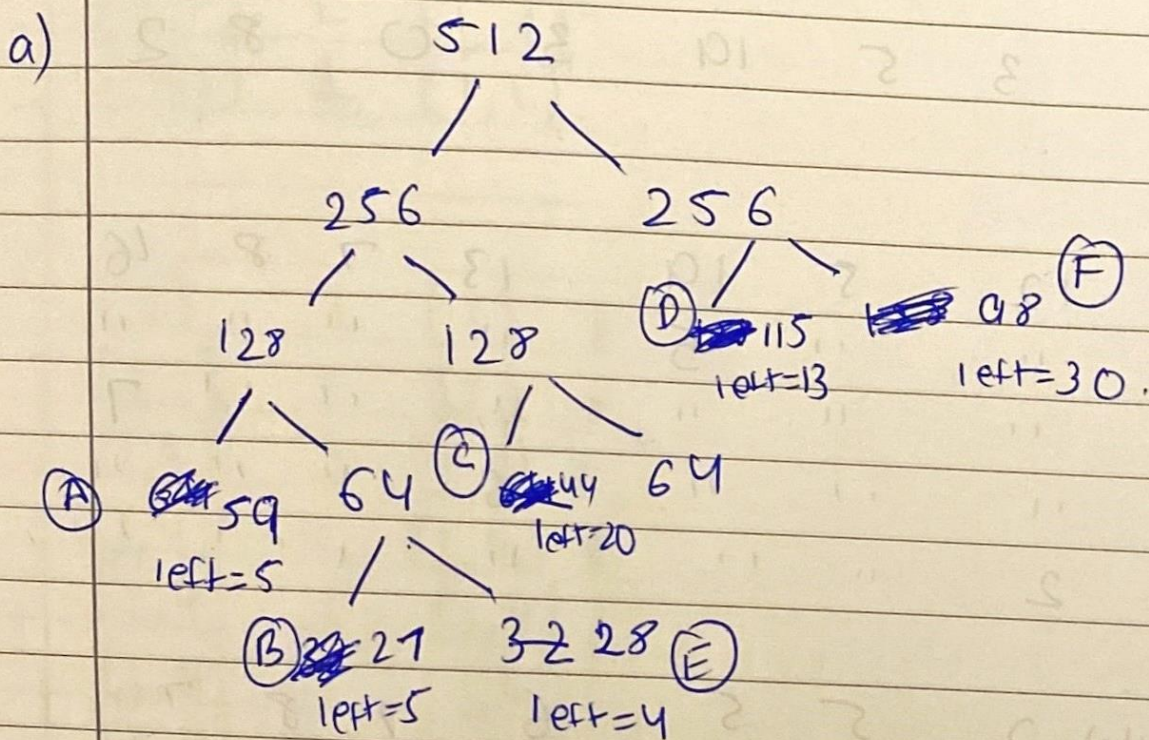 a) 512
256 256
F
128 128 D 115 98
left=13 left=30.
A 59 64 C 44 64
left=5 left=20
B 27 32 28 E
left=5 left=4